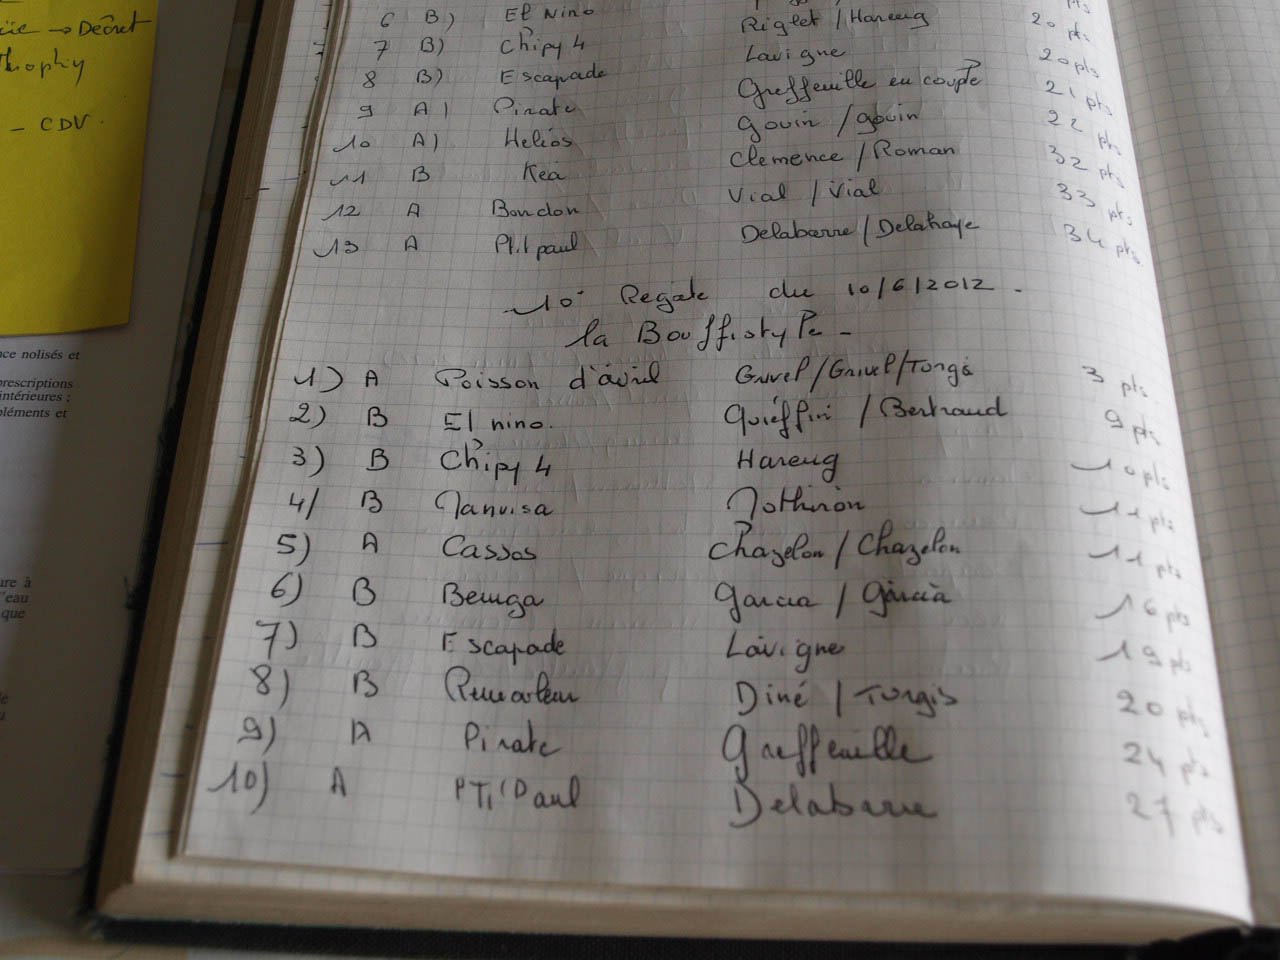 ïe → Décret
Trophy
- CDV.
nce nolisés et
prescriptions
intérieures ;
pléments et
ure à
l'eau
que
pts
6 B) El Nino Riglet / Hareng 20 pts
7 B) Chipy 4 Lavigne 20 pts
8 B) Escapade Greffeuille en coupe 21 pts
9 A) Pirate Gouin / gouin 22 pts
10 A) Helios Clemence / Roman 32 pts
11 B Kea Vial / Vial 33 pts
12 A Bondon Delabarre / Delahaye 34 pts
13 A Ptit paul
10° Regate du 10/6/2012.
la Bouffistyle -
1) A Poisson d'avril Grivel / Grivel / Torgis 3 pts
2) B El nino. Quiéffin / Bertraud 9 pts
3) B Chipy 4 Hareng 10 pts
4/ B Manvisa Mothiron 11 pts
5) A Cassos Chazelon / Chazelon 11 pts
6) B Beluga Garcia / Garcia 16 pts
7) B Escapade Lavigne 19 pts
8) B Diné / Torgis 20 pts
9) A Pirate Greffeuille 24 pts
10) A PTi'Paul Delabarre 27 pts